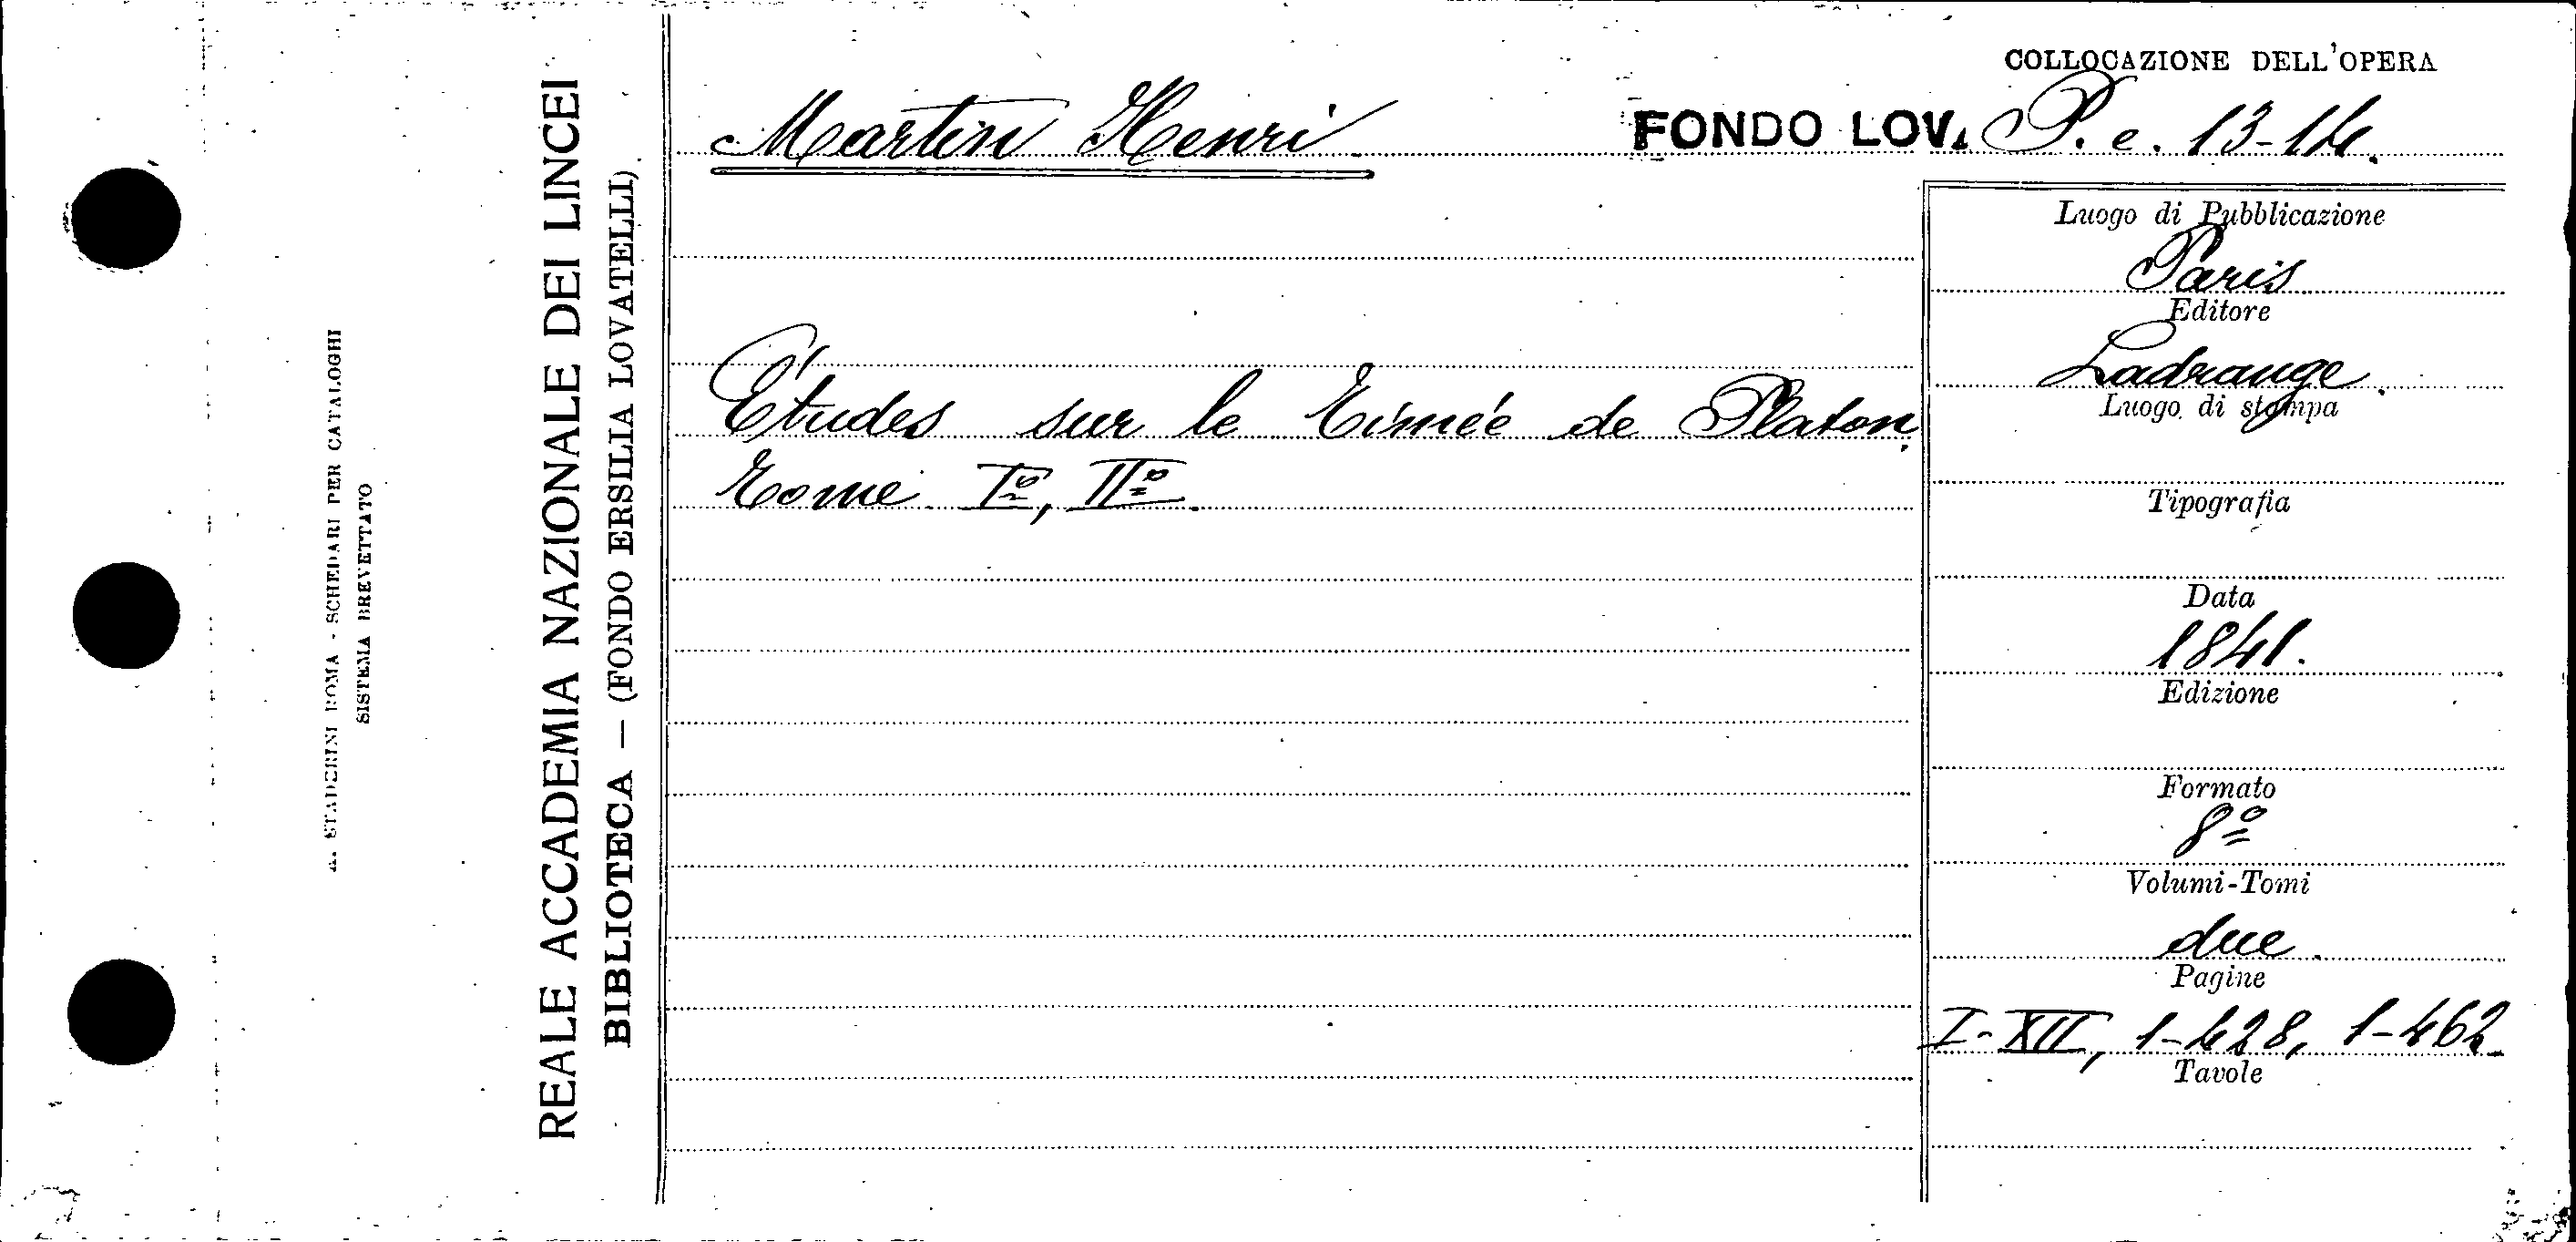 A. STADERINI ROMA - SCHEDARI PER CATALOGHI
SISTEMA BREVETTATO
REALE ACCADEMIA NAZIONALE DEI LINCEI
BIBLIOTECA — (FONDO ERSILIA LOVATELLI)
COLLOCAZIONE DELL'OPERA
Martin Henri
FONDO LOV. P. e. 13-14.
Études sur le Timée de Platon,
Tome Iº, IIº.
Luogo di Pubblicazione
Paris
Editore
Ladrange.
Luogo di stampa
Tipografia
Data
1841.
Edizione
Formato
8º
Volumi-Tomi
due.
Pagine
I-XII, 1-428, 1-462
Tavole